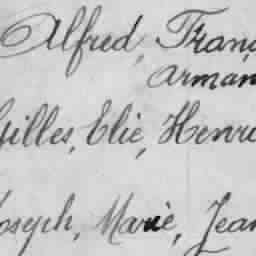 Alfred, Franç
Arman
Gilles, Elie, Henri
Joseph, Marie, Jean